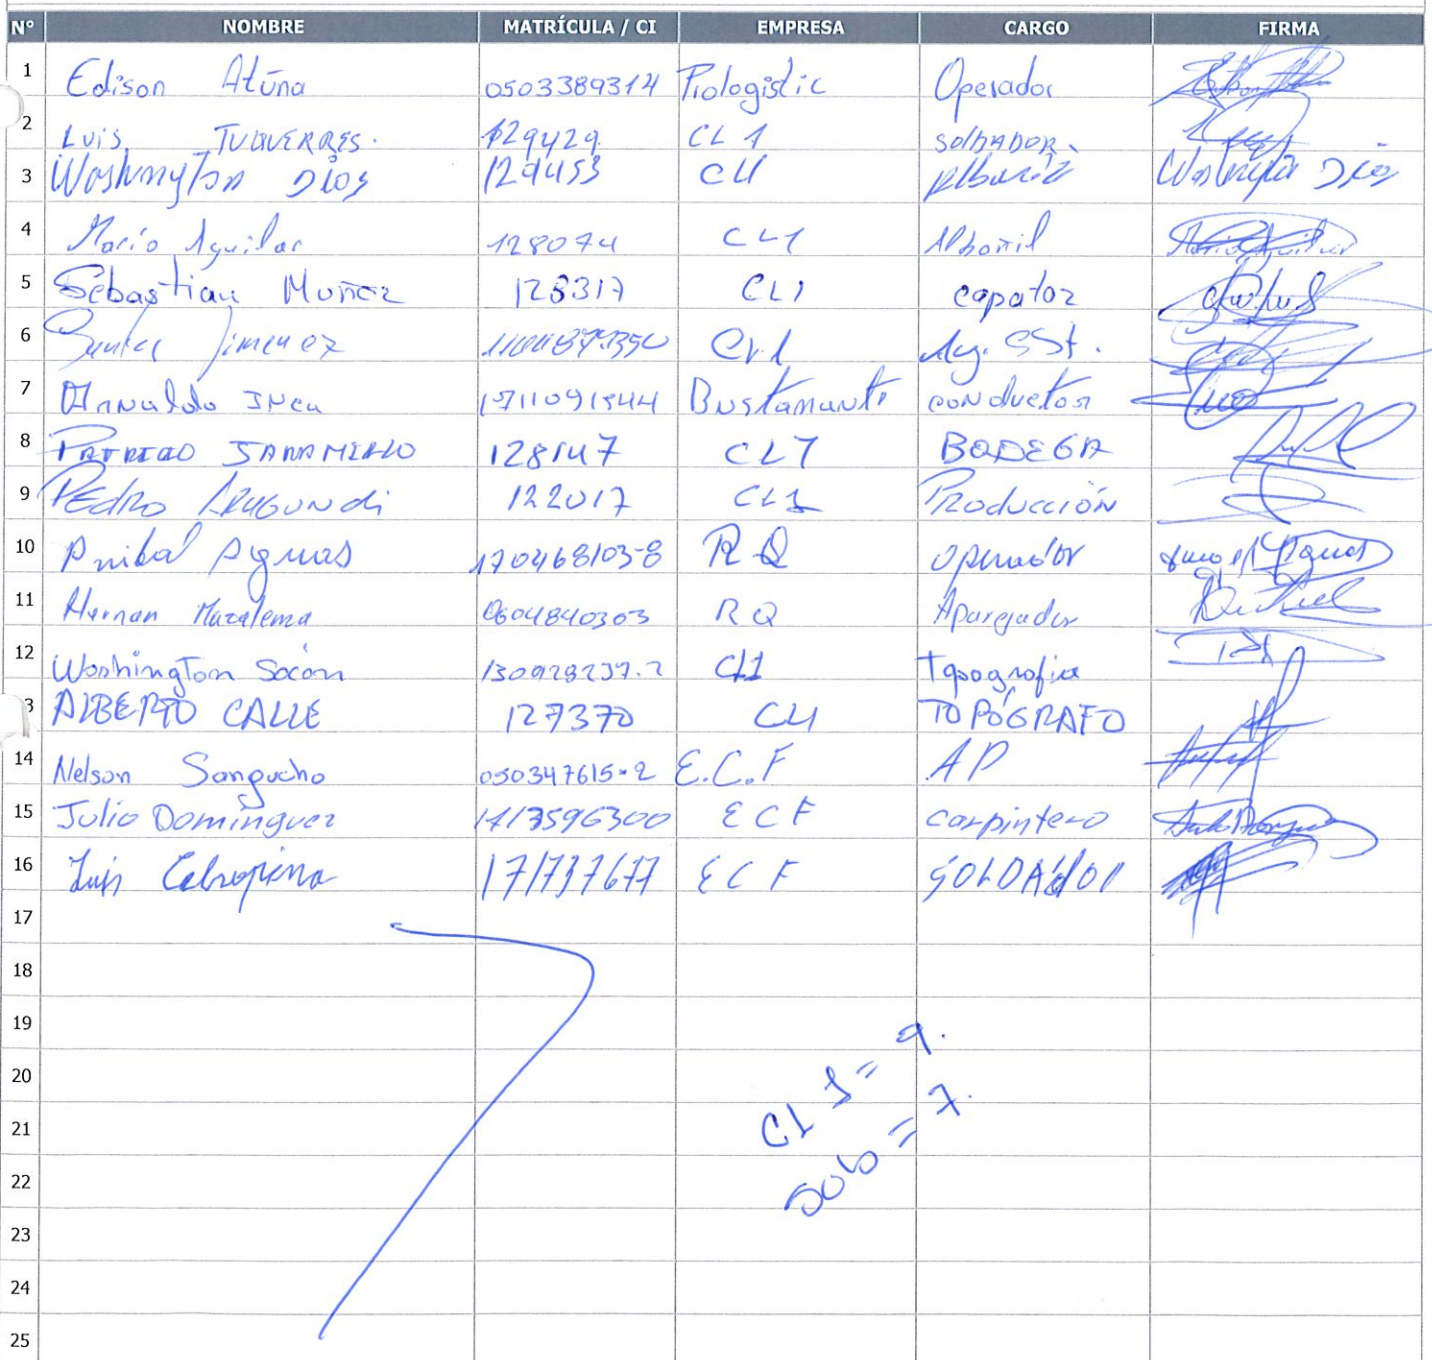 N° NOMBRE MATRÍCULA / CI EMPRESA CARGO FIRMA
1 Edison Atūna 0503389314 Prologistic Operador
2 Luis TUQUERRES. 129429 CL1 SOLDADOR
3 Washington Dios 129453 CL1 Albañil Washington Dios
4 Mario Aguilar 128074 CL1 Albañil
5 Sebastian Muñoz 128317 CL1 capataz
6 Jimenez CL1 SSt.
7 Arnaldo Inca 1711091544 Bustamante conductor
8 PATRICIO JARAMILLO 128147 CL1 BODEGA
9 PEDRO ARAGUNDI 122017 CL1 PRODUCCIÓN
10 Anibal 170468103-8 RQ Operador
11 Hernan Mazalema 0604840303 RQ Aparejador
12 Washington 130928237-2 CL1 Topografia
3 ALBERTO CALLE 127370 CL1 TOPÓGRAFO
14 Nelson Sangucho 050347615-2 E.C.F AP
15 Julio Dominguez 1713596300 ECF carpintero
16 Luis 171737677 ECF SOLDADOR
17
18
19
20
21
22
23
24
25
CL1 = 9.
sub = 7.